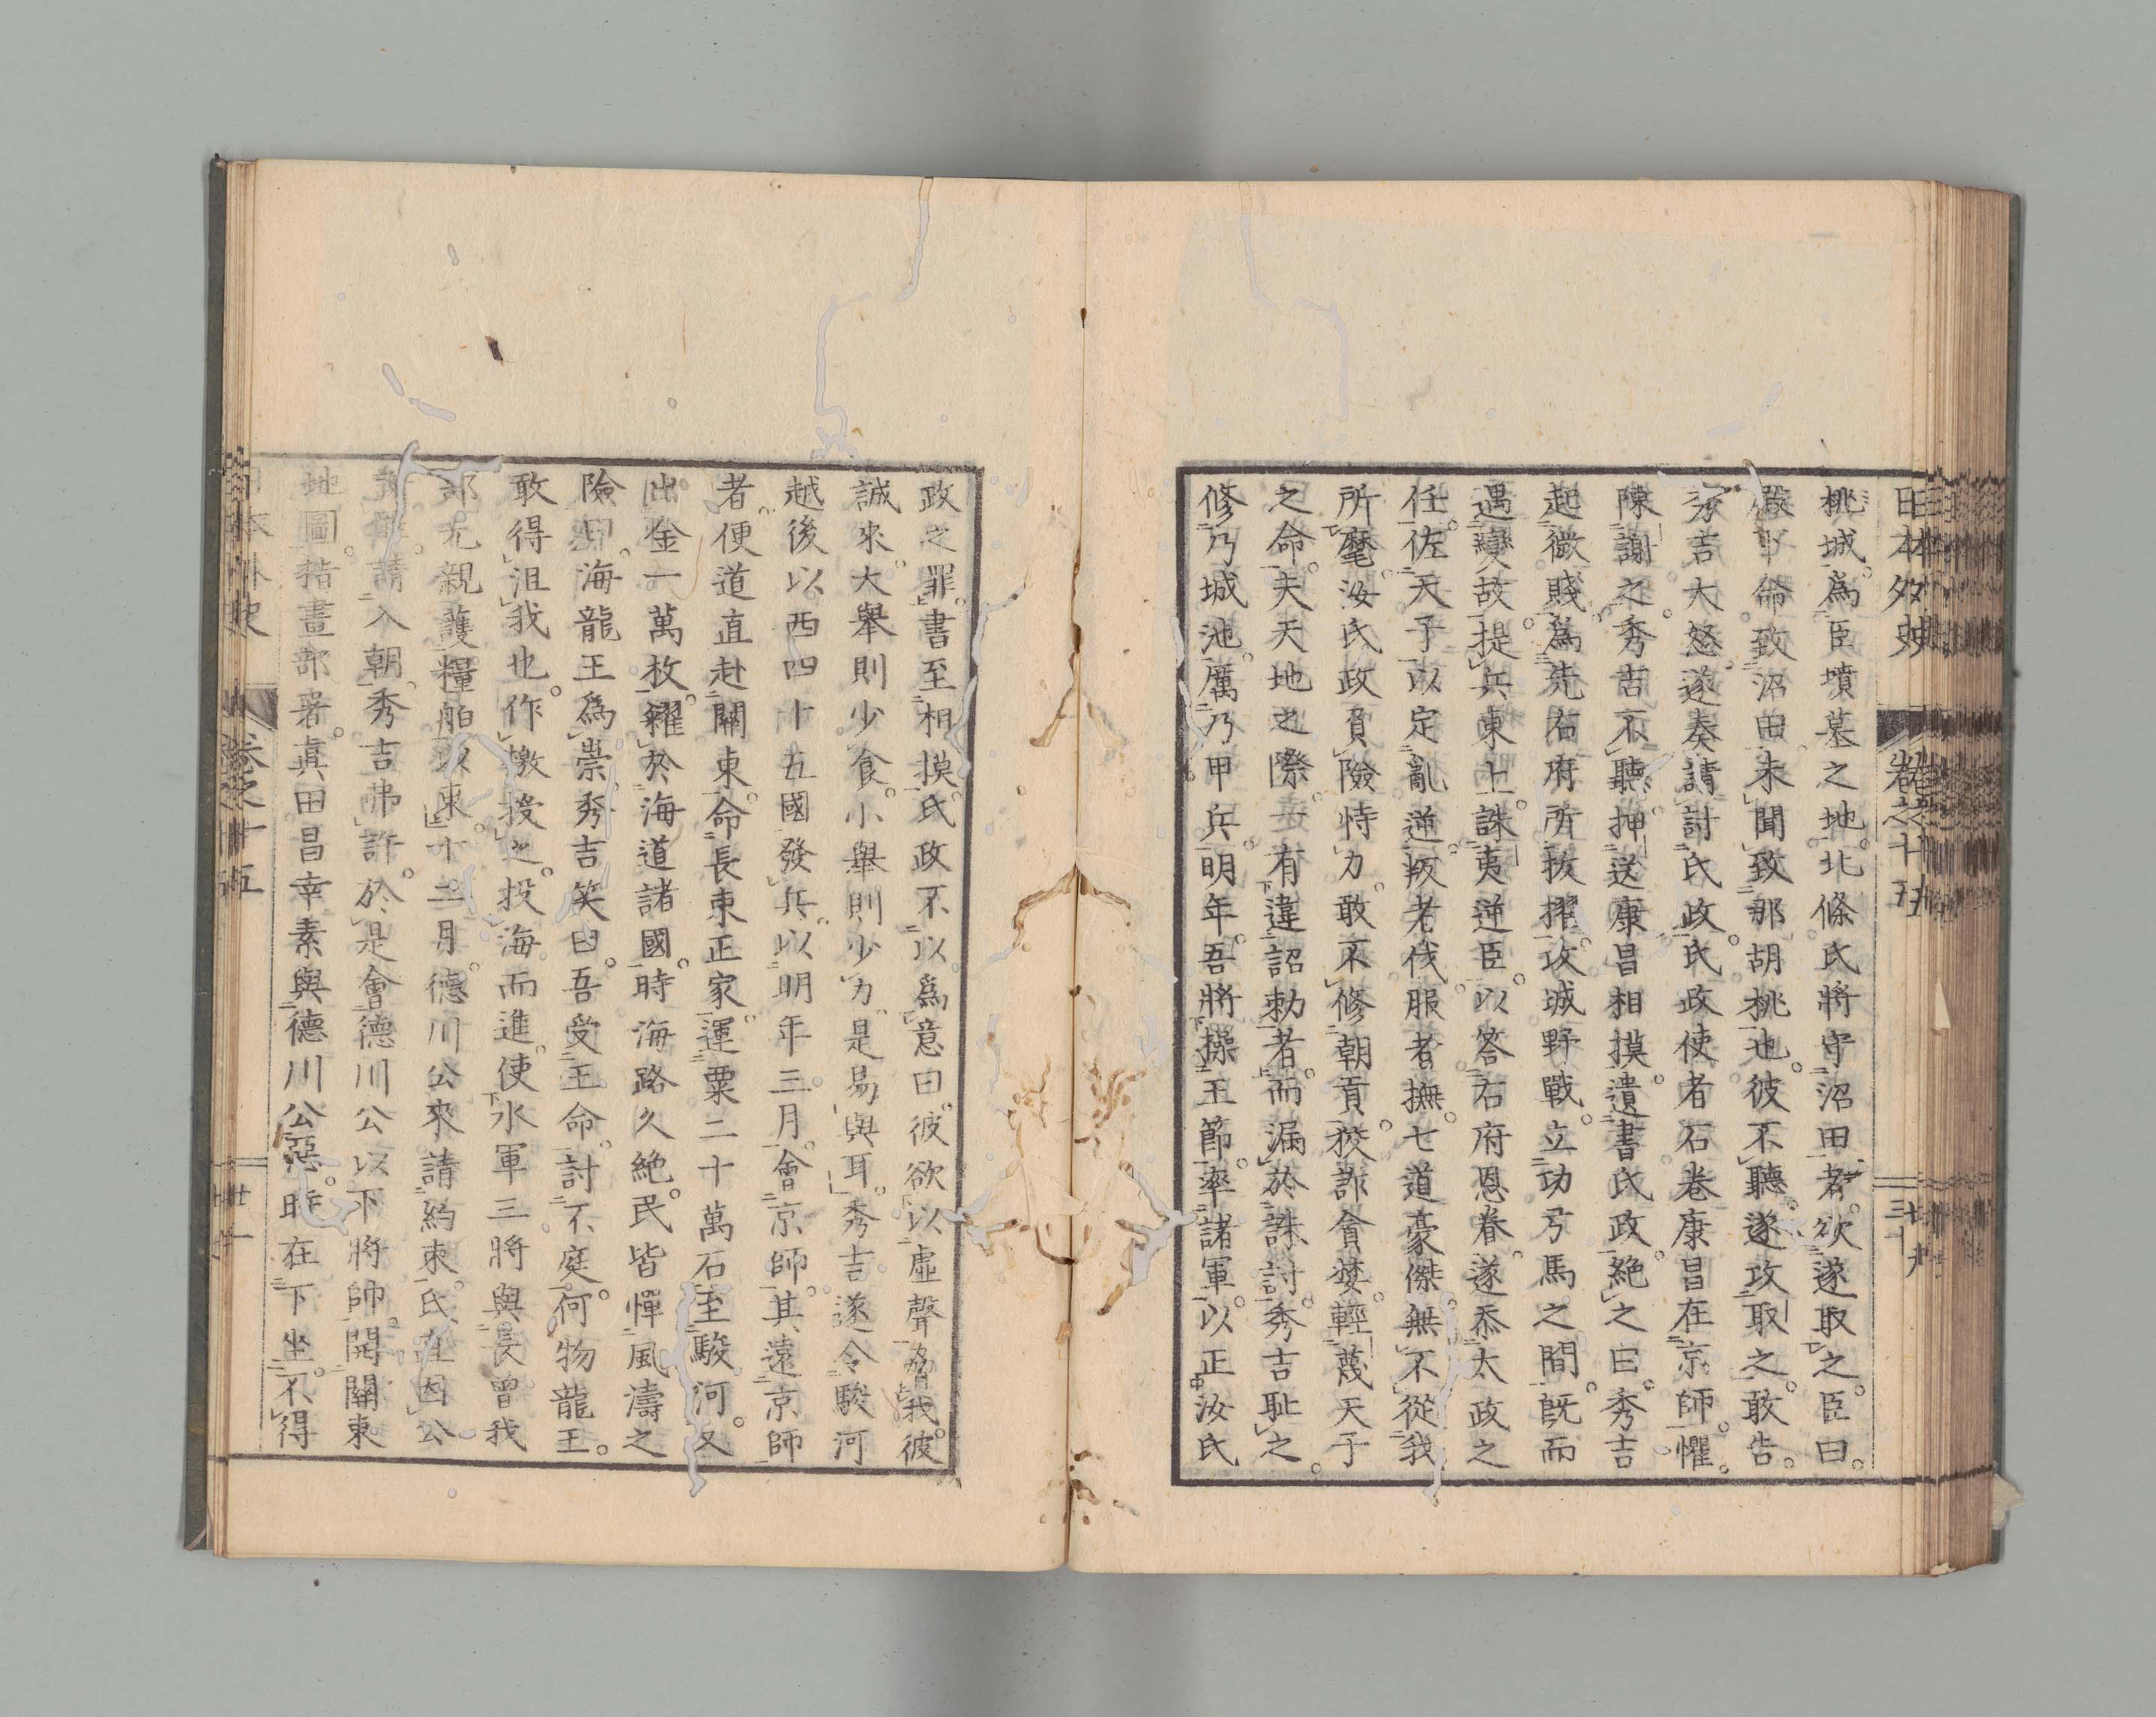 日本外史 卷之十五
桃城爲臣墳墓之地北條氏將守沼田者欲遂取之臣曰
嚴命致沼田未聞致那胡桃也彼不聽遂攻取之敢告
秀吉大怒遂奏請討氏政氏政使者石卷康昌在京師懼
陳謝之秀吉不聽押送康昌相摸遺書氏政絶之曰秀吉
起微賤爲先右府所拔擢攻城野戰立功弓馬之間既而
遇變故提兵東上誅夷逆臣以答右府恩眷遂忝太政之
任佐天子以定亂逆叛者伐服者撫七道豪傑無不從我
所麾汝氏政負險恃力敢不修朝貢狡詐貪婪輕蔑天子
之命夫天地之際有違詔勅者而漏於誅討秀吉耻之
修乃城池厲乃甲兵明年吾將操王節率諸軍以正汝氏
政之罪書至相摸氏政不以爲意曰彼欲以虛聲脅我彼
誠來大舉則少食小舉則少力是易與耳秀吉遂令駿河
越後以西四十五國發兵以明年三月會京師其遠京師
者便道直赴關東命長束正家運粟二十萬石至駿河又
出金一萬枚糴於海道諸國時海路久絶民皆憚風濤之
險曰海龍王爲祟秀吉笑曰吾受王命討不庭何物龍王
敢得沮我也作檄授之投海而進使水軍三將與長曾我
部元親護糧舶以東十二月德川公來請約束氏直因公
謝罪請入朝秀吉弗許於是會德川公以下將帥開關東
地圖指畫部署眞田昌幸素與德川公惡時在下坐不得
日本外史 卷之十五